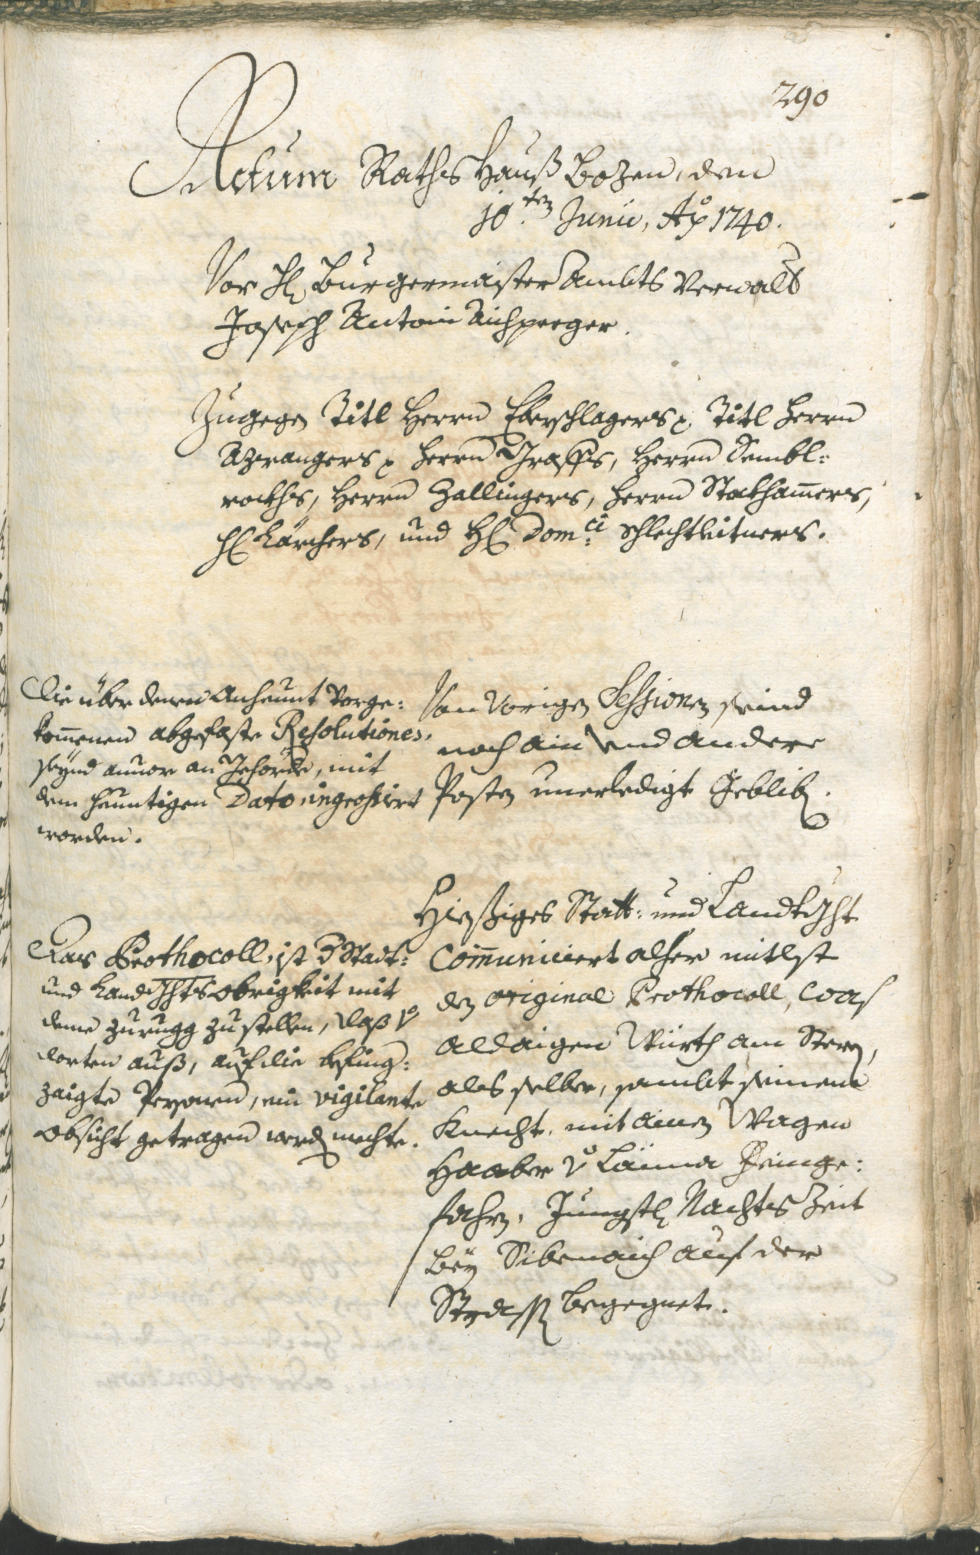 290
Actum Raths Hauß Bozen, den
10.ten Junii, Ao 1740.
Vor H. Burgermaister Ambts Verwalt
Joseph Antoni Aichperger.
Zugegen Titl Herrn Eberschlagers, Titl Herrn
Azwangers Herrn Graffs, Herrn Sembl¬
rocks, Herrn Zallingers, Herrn Stockham̄ers,
H. Kärchers, und H. Dom:ci Schlechtleitners.
Die über denen Anheunt Vorge¬
kom̄enen abgefaste Resolutiones,
seynd anvor an Gehörde, mit
dem heuntigen Dato, ingrossiert
worden.
Von Vorigen Sessionen seind
noch ain und andere
Posten unerledigt geblib.
Das Prothocoll, ist Stadt¬
und LandGhts obrigkeit mit
deme zurugg zu stellen, daß
dorten auß, auf die
zaigte Personen, ein vigilante
obsicht getragen werden mechte.
Hießiges Statt: und LandtGht
Com̄uniciert alher mitlst
den original Prothocoll, was
aldaigen Würth am Stern,
als selber, sambt seinem
Knecht, mit ainen Wagen
Haaber
fahren, Jüngstl. Nachts Zeit
bey Sibenaich auf der
Strassen begegnet.